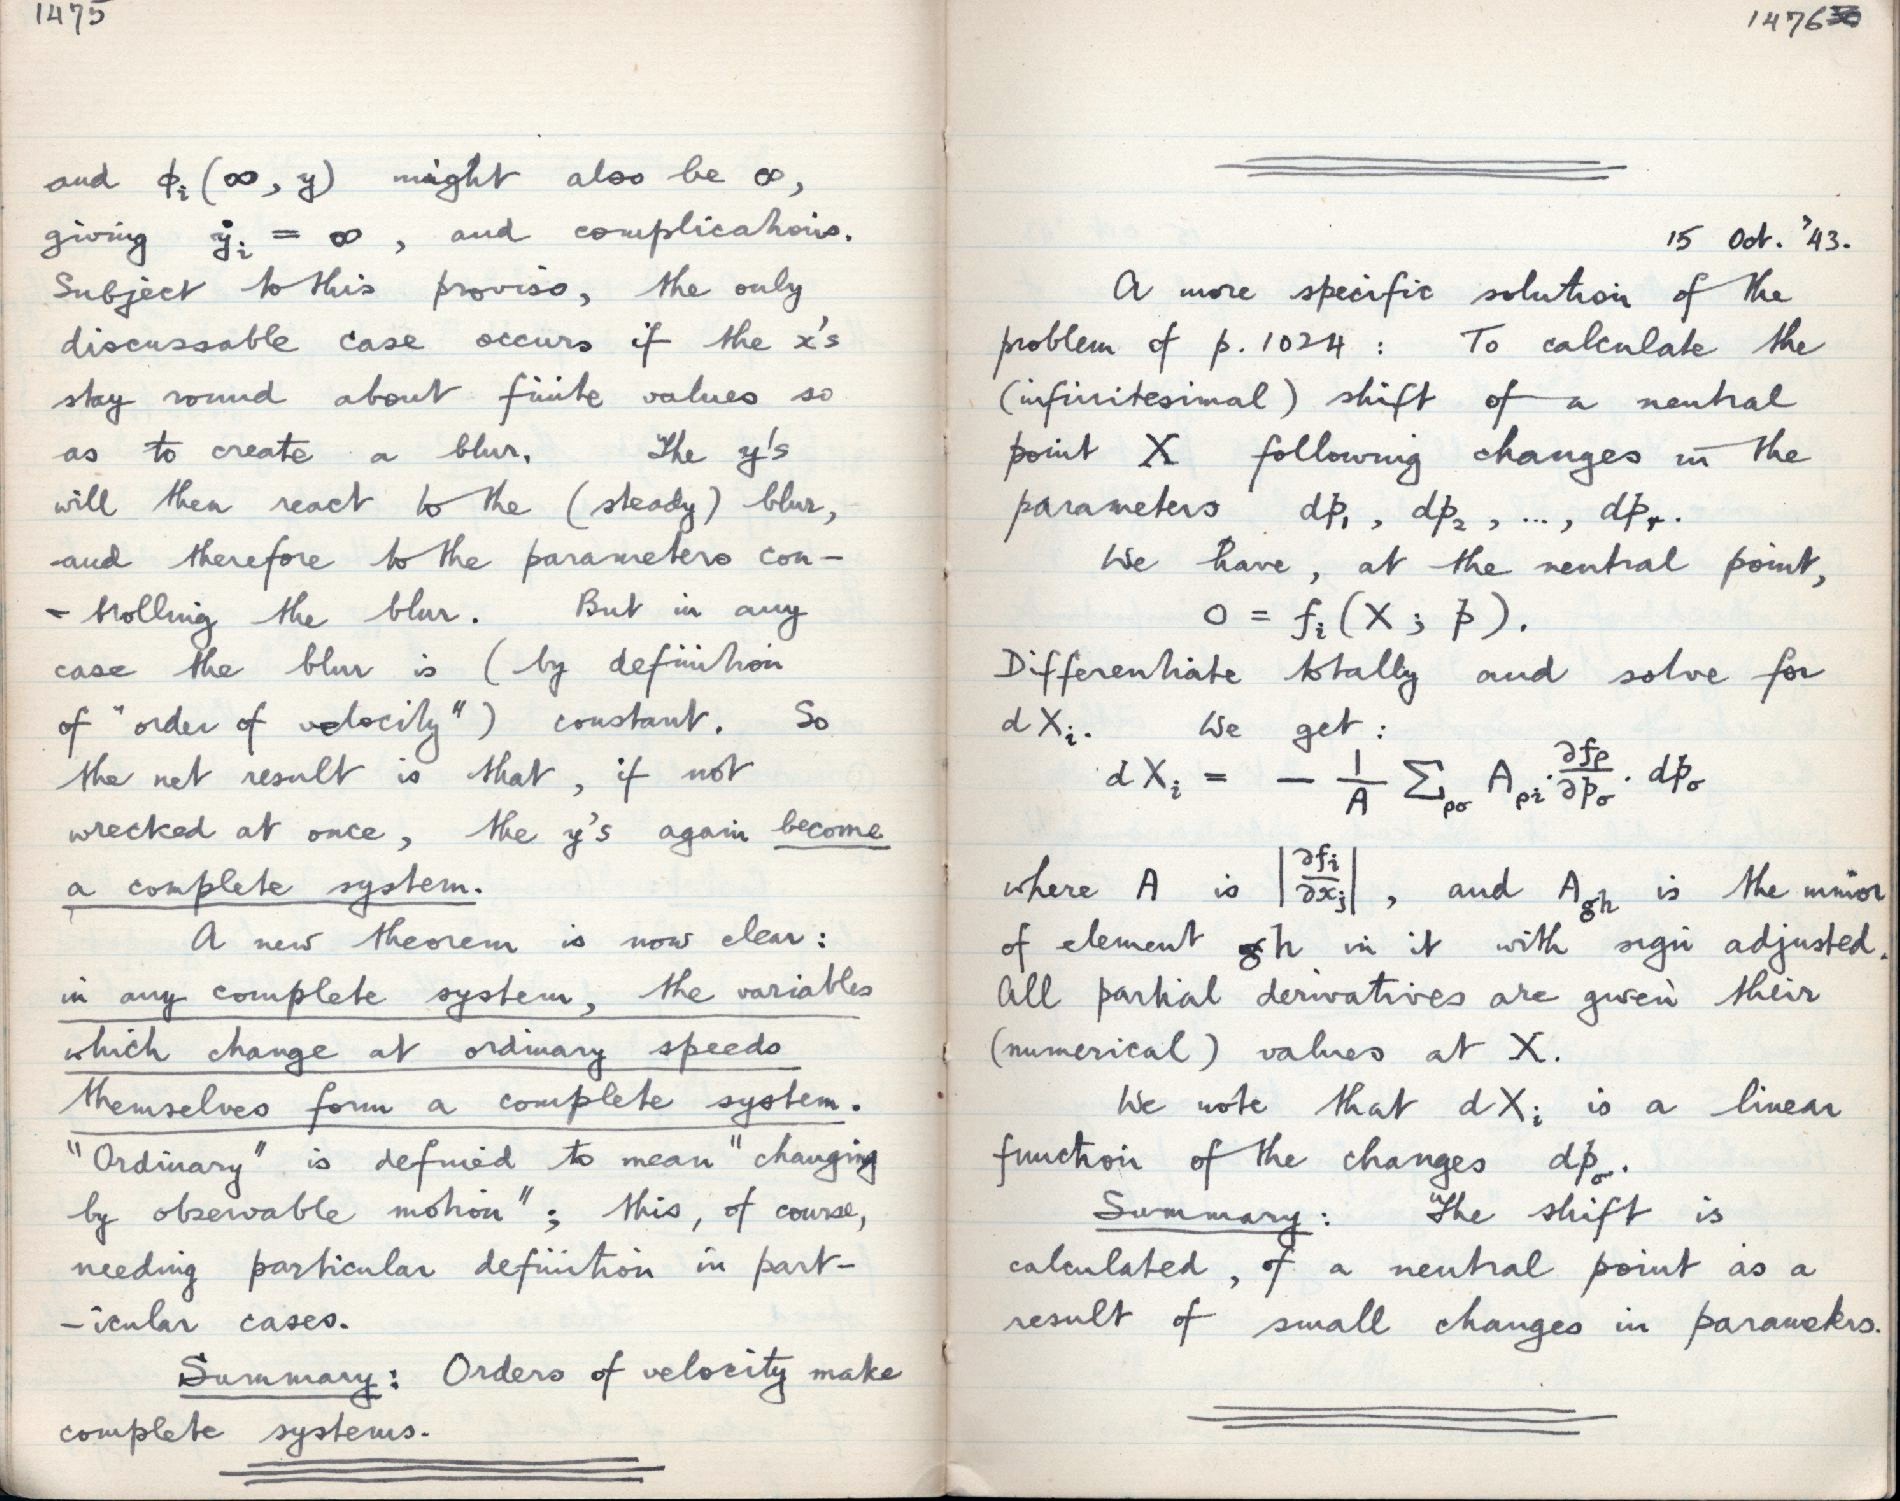 1475
and ϕᵢ(∞, y) might also be ∞,
giving ẏᵢ = ∞, and complications.
Subject to this proviso, the only
discussable case occurs if the x's
stay round about finite values so
as to create a blur. The y's
will then react to the (steady) blur,
and therefore to the parameters con-
-trolling the blur. But in any
case the blur is (by definition
of "order of velocity") constant. So
the net result is that, if not
wrecked at once, the y's again become
a complete system.
A new theorem is now clear:
in any complete system, the variables
which change at ordinary speeds
themselves form a complete system.
"Ordinary" is defined to mean "changing
by observable motion"; this, of course,
needing particular definition in part-
-icular cases.
Summary: Orders of velocity make
complete systems.
1476
15 Oct. '43.
A more specific solution of the
problem of p. 1024: To calculate the
(infinitesimal) shift of a neutral
point X following changes in the
parameters dp₁, dp₂, ..., dpᵣ.
We have, at the neutral point,
0 = fᵢ(X; p).
Differentiate totally and solve for
dXᵢ. We get:
dXᵢ = − 1/A ∑ρσ Aρi · ∂fρ/∂pσ · dpσ
where A is |∂fᵢ/∂xⱼ|, and A_gh is the minor
of element gh in it with sign adjusted.
All partial derivatives are given their
(numerical) values at X.
We note that dXᵢ is a linear
function of the changes dpσ.
Summary: The shift is
calculated, of a neutral point as a
result of small changes in parameters.